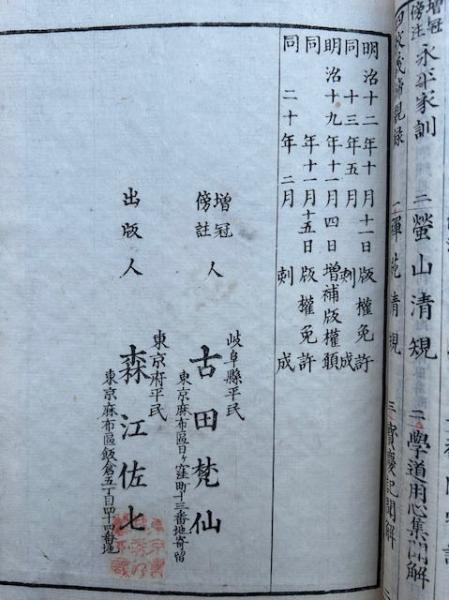 増冠
傍註 永平家訓
二 瑩山清規
二 學道用心集聞解
明治十二年十月十一日版權免許
同 十三年五月 刺成
明治十九年十一月四日増補版權願
同 年十一月十五日版權免許
同 二十年二月 刺成
増冠
傍註 人
岐阜縣平民
古田梵仙
東京麻布區日ヶ窪町十三番地寄留
出版人
東京府平民
森江佐七
東京麻布區飯倉五丁目四十四番地